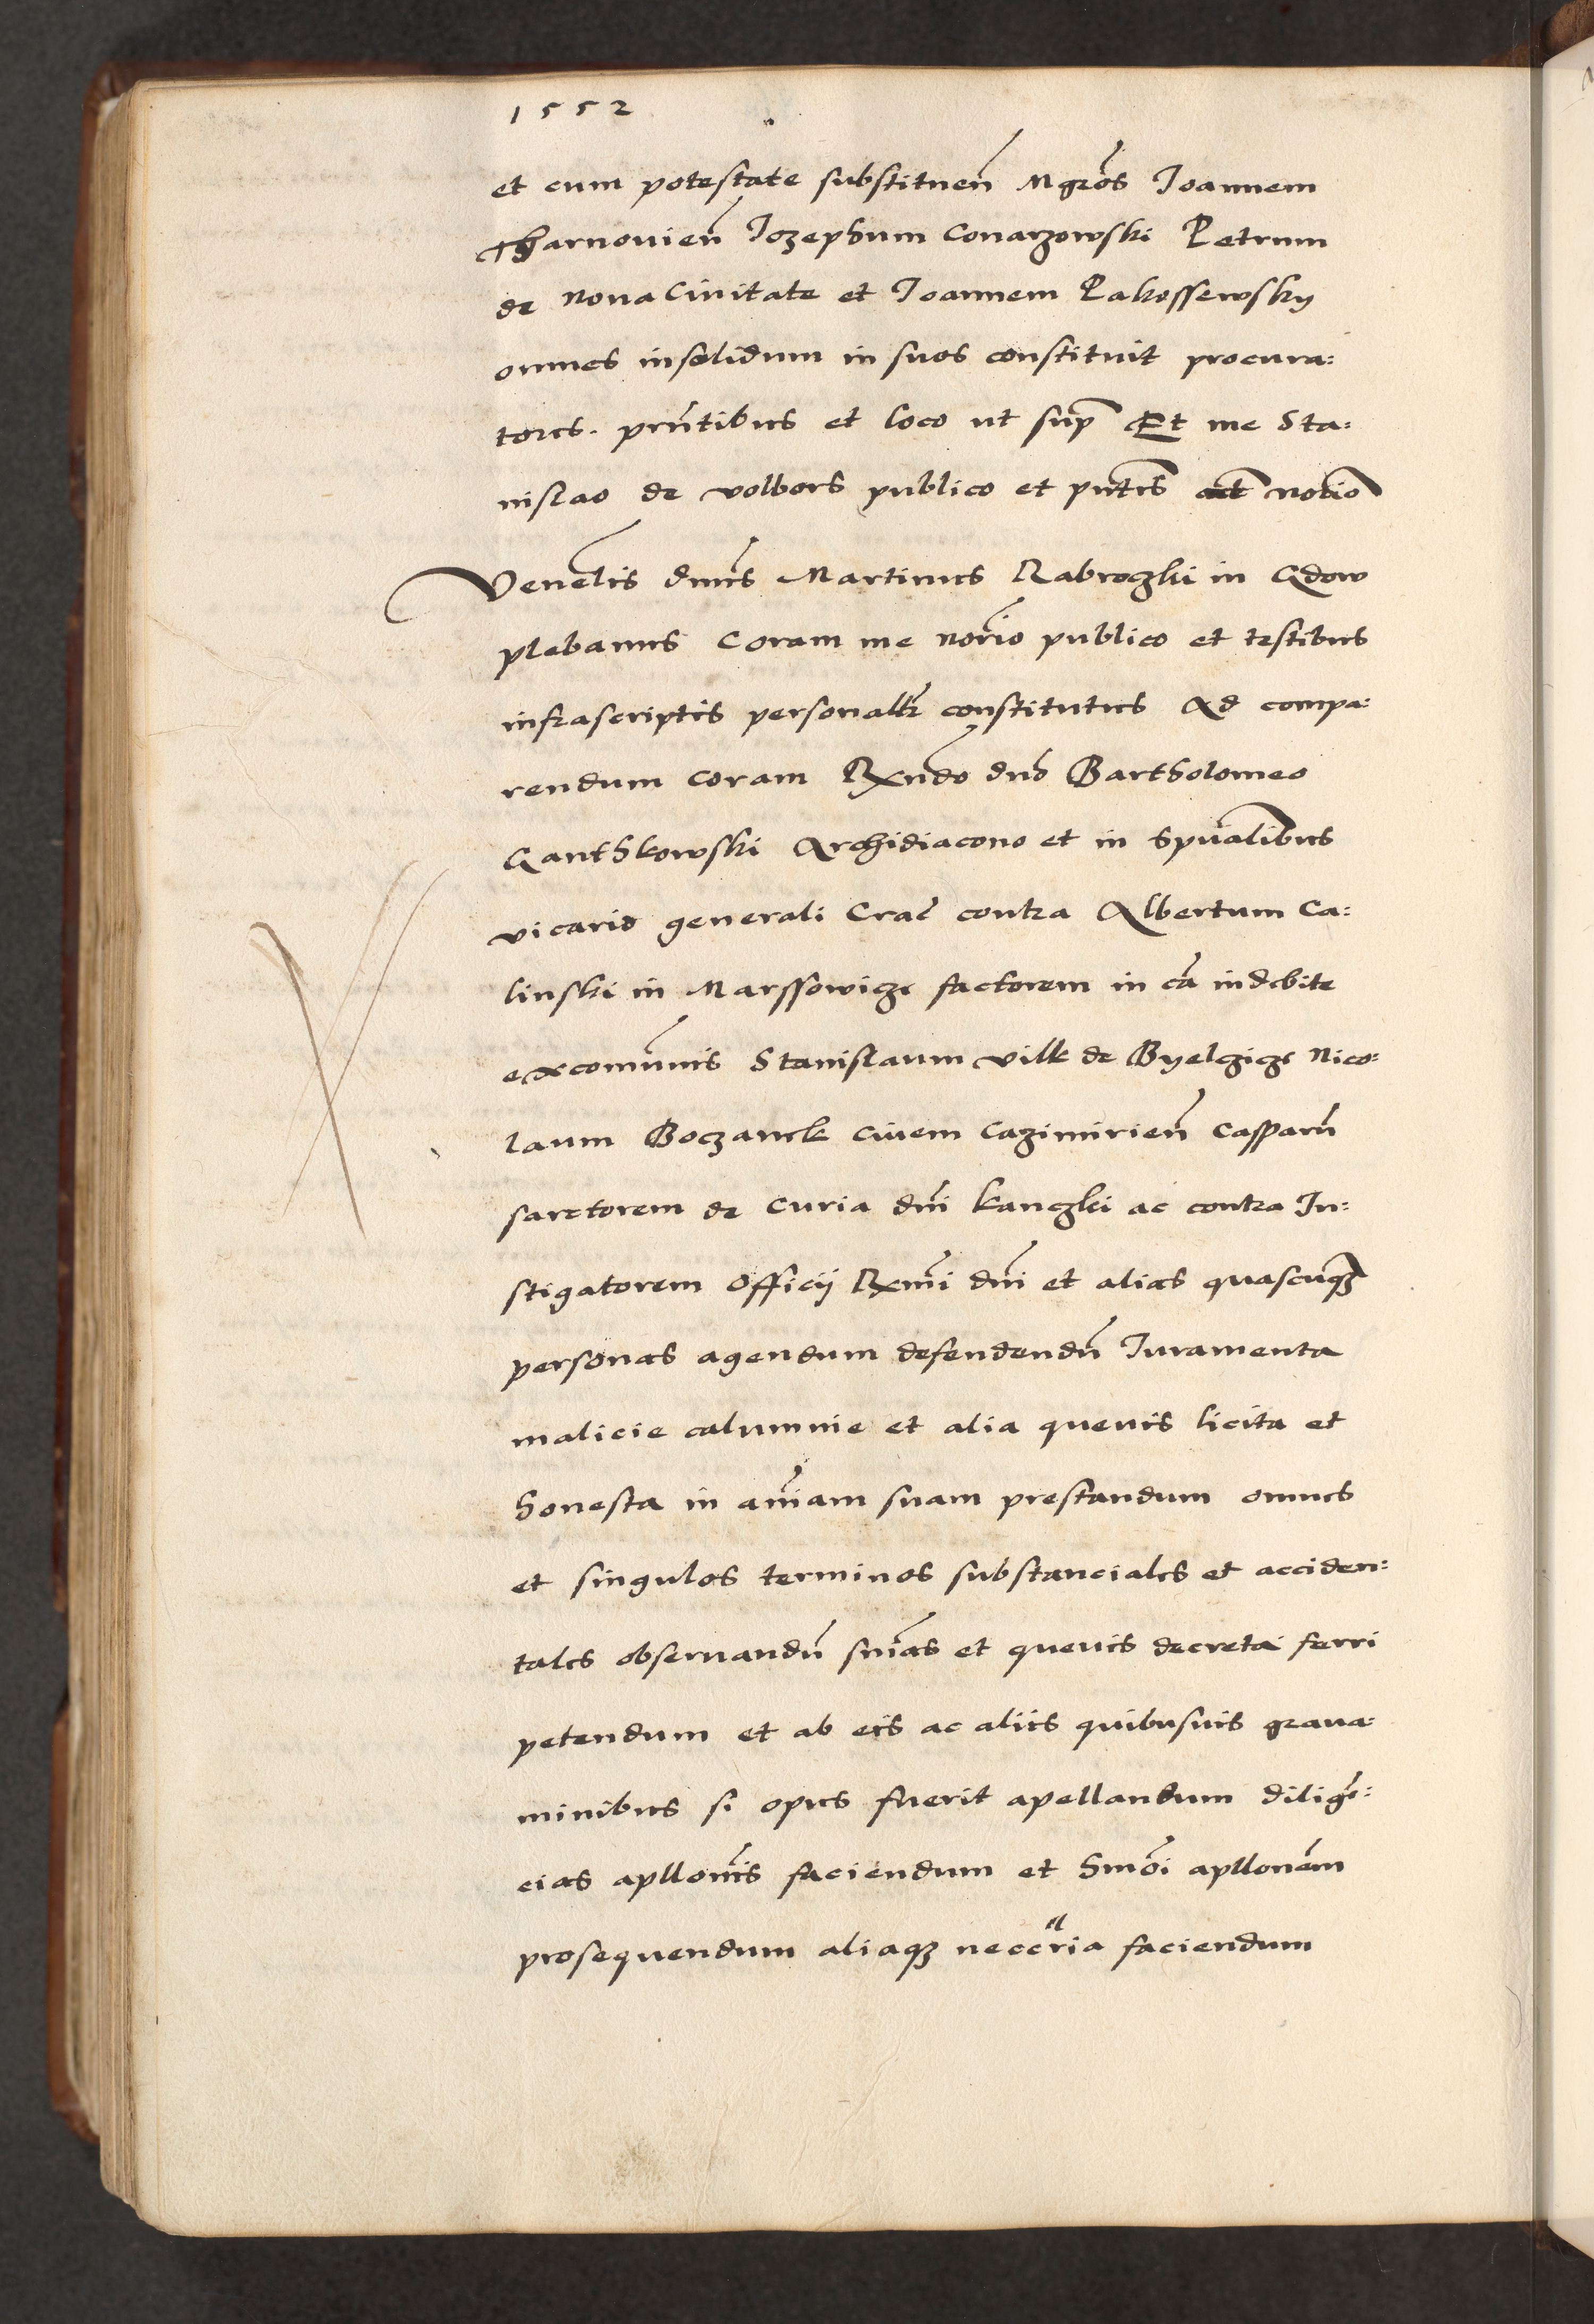 1552
et cum potestate substituen̄ Mgr̄os Joannem
Tharnovien̄ Jozephum Conarzowski Petrum
de Nova Civitate et Joannem Pakossewsky
omnes insolidum in suos constituit procura:
tores. pñtibus et loco ut sup̄ Et me Sta:
nislao de volbors publico et pñtis act̄ notio
Venelis dn̄us Martinus Rabroczki in Gdow
plebanus Coram me notio publico et testibus
infrascriptis personalr̄ constitutus Ad compa:
rendum coram Rxn̄do dn̄o Bartholomeo
Ganthkowski Archidiacono et in Spūalibus
vicario generali Crac̄ contra Albertum Ca:
linski in Marssowicze factorem in cā indebite
excomūnis Stanislaum vilk de Byelczicze Nico:
laum Boczanek civem Cazimirien̄ Casparū
sarctorem de Curia dn̄i kanczki ac contra In:
stigatorem Officij Rxm̄i dn̄i et alias quascūqȝ
personas agendum defendendū Juramenta
malicie calumnie et alia quevis licita et
honesta in aīam suam prestandum omnes
et singulos terminos substanciales et acciden:
tales observandū sn̄ias et quevis decreta ferri
petendum et ab eis ac aliis quibusvis grava:
minibus si opus fuerit apellandum diligē:
cias apllon̄is faciendum et hmōi apllonēm
prosequendum aliaqȝ neccr̄ia faciendum